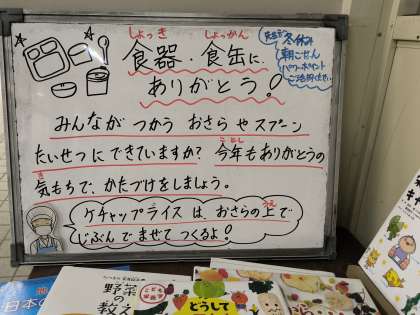 しょっき しょっかん
食器・食缶に、
ありがとう!
冬休み
朝ごはん
パワーポイント
みんなが つかう おさら や スプーン
たいせつ に できていますか? 今年もありがとうの
ことし
気もちで、かたづけをしましょう。
き
ケチャップライス は、おさらの上で
うえ
じぶんで まぜて つくるよ!
野菜
の
教え
どうして
日本の